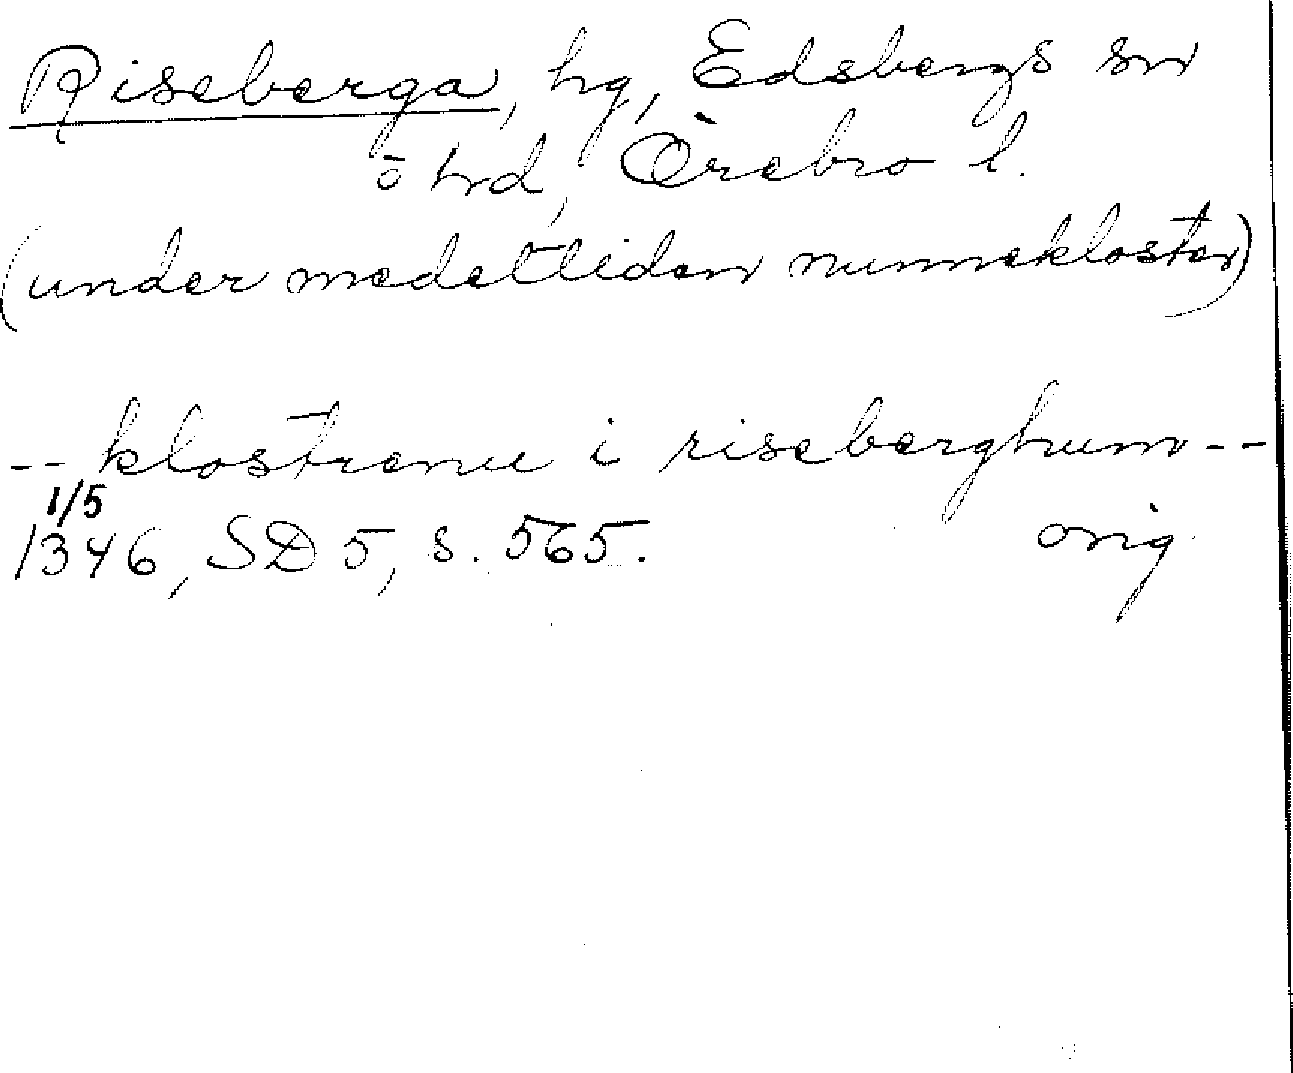 Riseberga, hg, Edsbergs sn
o hd, Örebro l.
(under medeltiden nunnekloster)
-- klostreno i riseberghum --
1/5
1346, SD 5, s. 565. orig